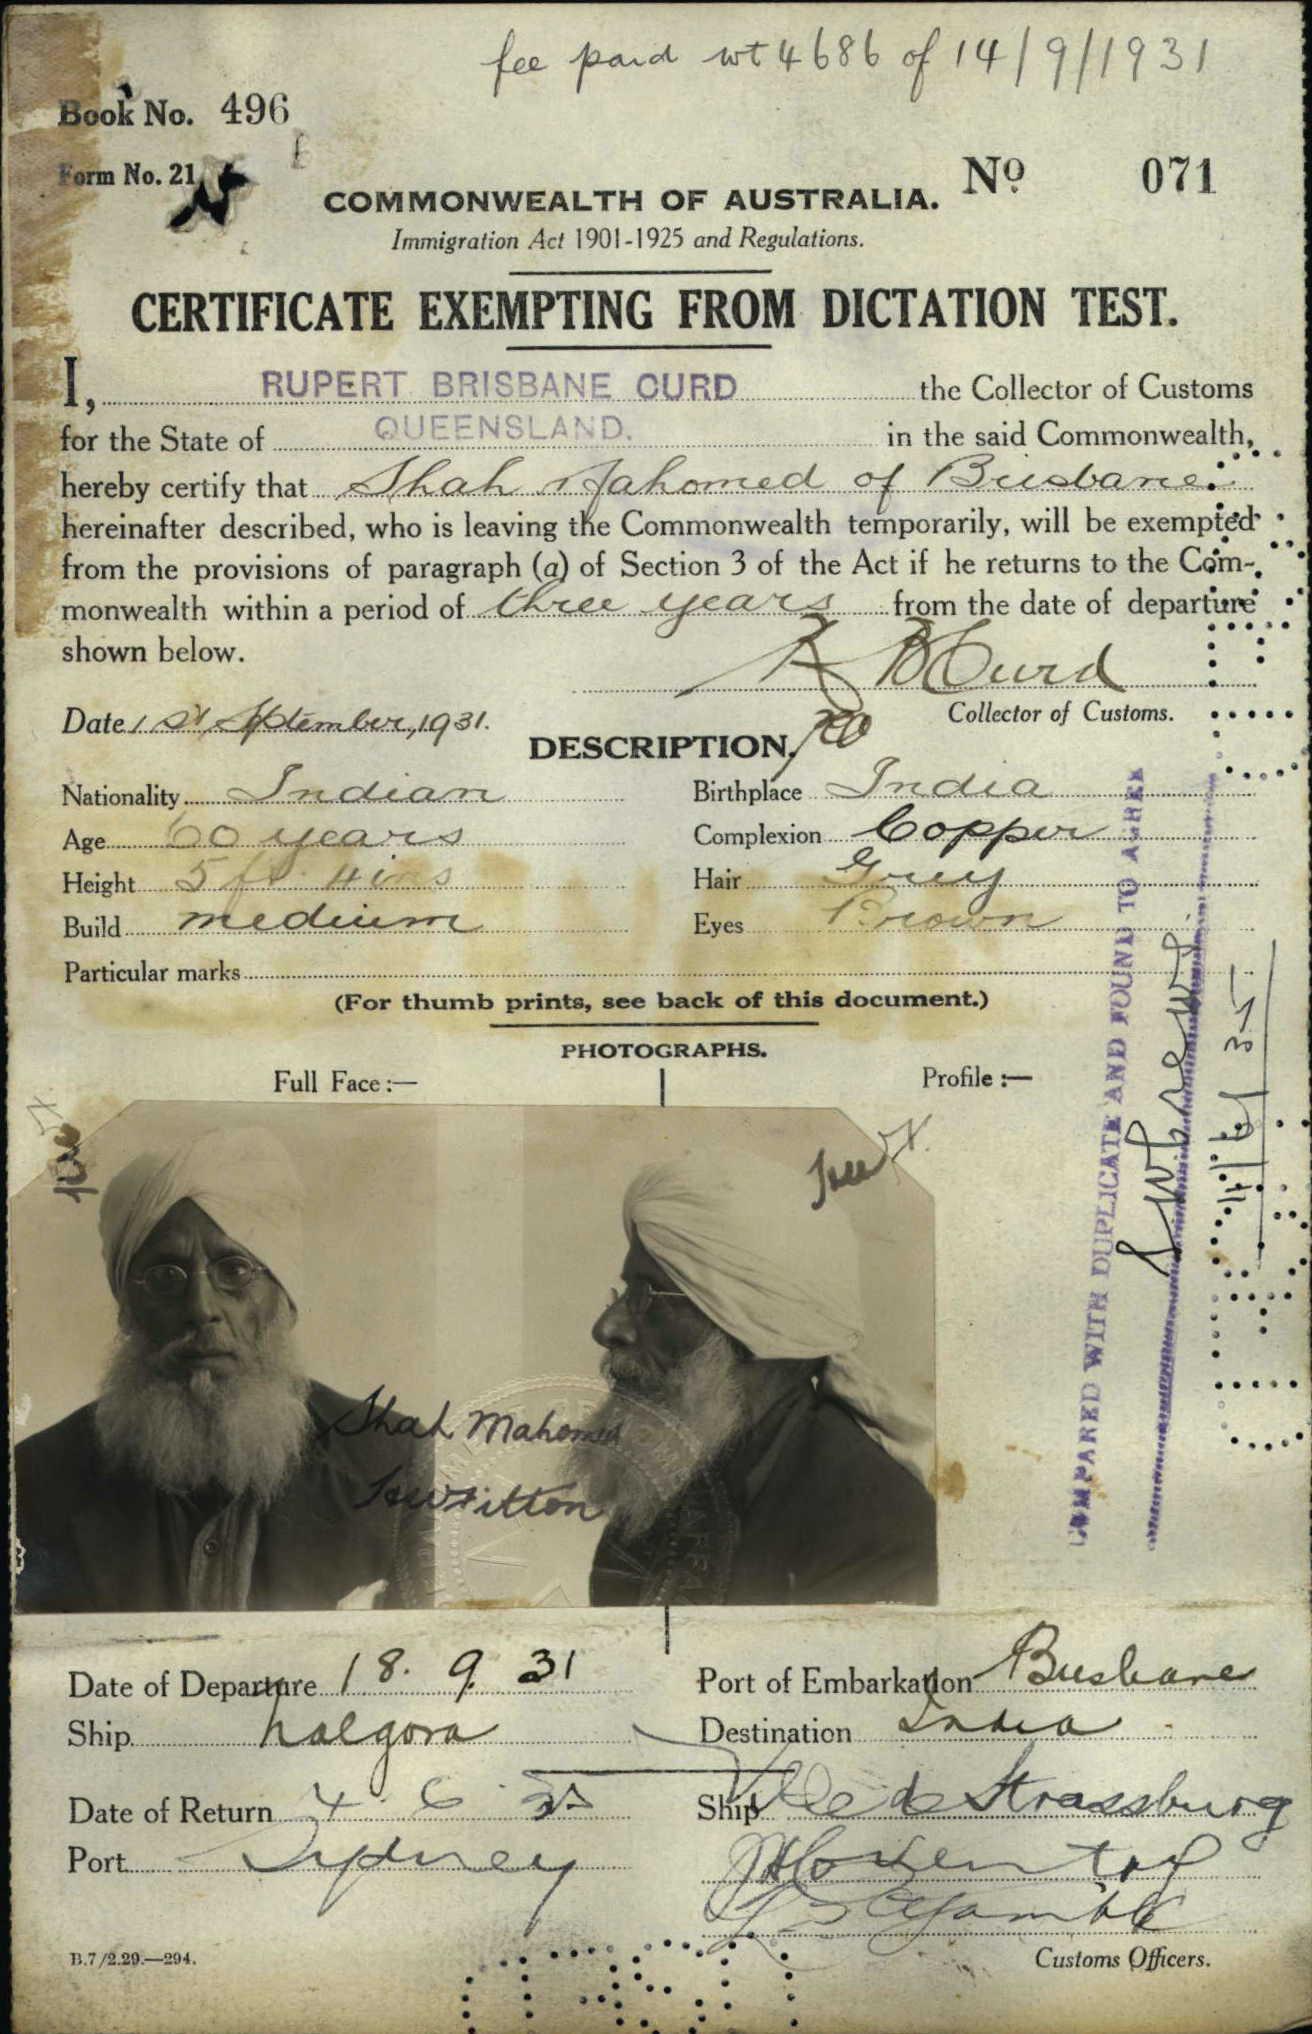 fee paid wt 4686 of 14/9/1931
Book No. 496
Form No. 21
No. 071
COMMONWEALTH OF AUSTRALIA.
Immigration Act 1901-1925 and Regulations.
CERTIFICATE EXEMPTING FROM DICTATION TEST.
I, RUPERT BRISBANE CURD the Collector of Customs
for the State of QUEENSLAND. in the said Commonwealth,
hereby certify that Shah Mahomed of Brisbane
hereinafter described, who is leaving the Commonwealth temporarily, will be exempted
from the provisions of paragraph (a) of Section 3 of the Act if he returns to the Com-
monwealth within a period of three years from the date of departure
shown below.
R B Curd
Date 1st September, 1931.
Collector of Customs.
DESCRIPTION.
Nationality Indian
Birthplace India
Age 60 years
Complexion Copper
Height 5 ft 4 ins
Hair Grey
Build medium
Eyes Brown
Particular marks
(For thumb prints, see back of this document.)
PHOTOGRAPHS.
Full Face:—
Profile:—
COMPARED WITH DUPLICATE AND FOUND TO AGREE
Shah Mahomed
Date of Departure 18. 9. 31
Port of Embarkation Brisbane
Ship Nalgora
Destination India
Date of Return 4. 6. 35
Ship Ville de Strassburg
Port Sydney
B.7/2.29.—294.
Customs Officers.